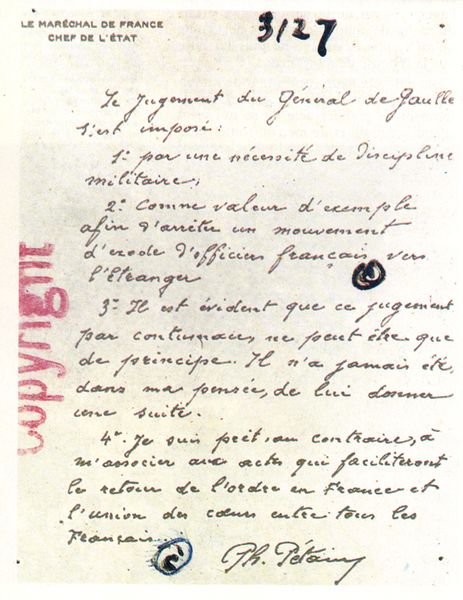 LE MARÉCHAL DE FRANCE
CHEF DE L'ÉTAT
3/27
Le jugement du Général de Gaulle
s'est imposé:
1: par une nécessité de discipline
militaire;
2° Comme valeur d'exemple
afin d'arrêter un mouvement
d'exode d'officiers français vers
l'Étranger
3° Il est évident que ce jugement
par contumace, ne peut être que
de principe. Il n'a jamais été,
dans ma pensée, de lui donner
une suite.
4° Je suis prêt, au contraire, à
m'associer aux actes qui faciliteront
le retour de l'ordre en France et
l'union des cœurs entre tous les
Français.
Ph. Pétain
copyright